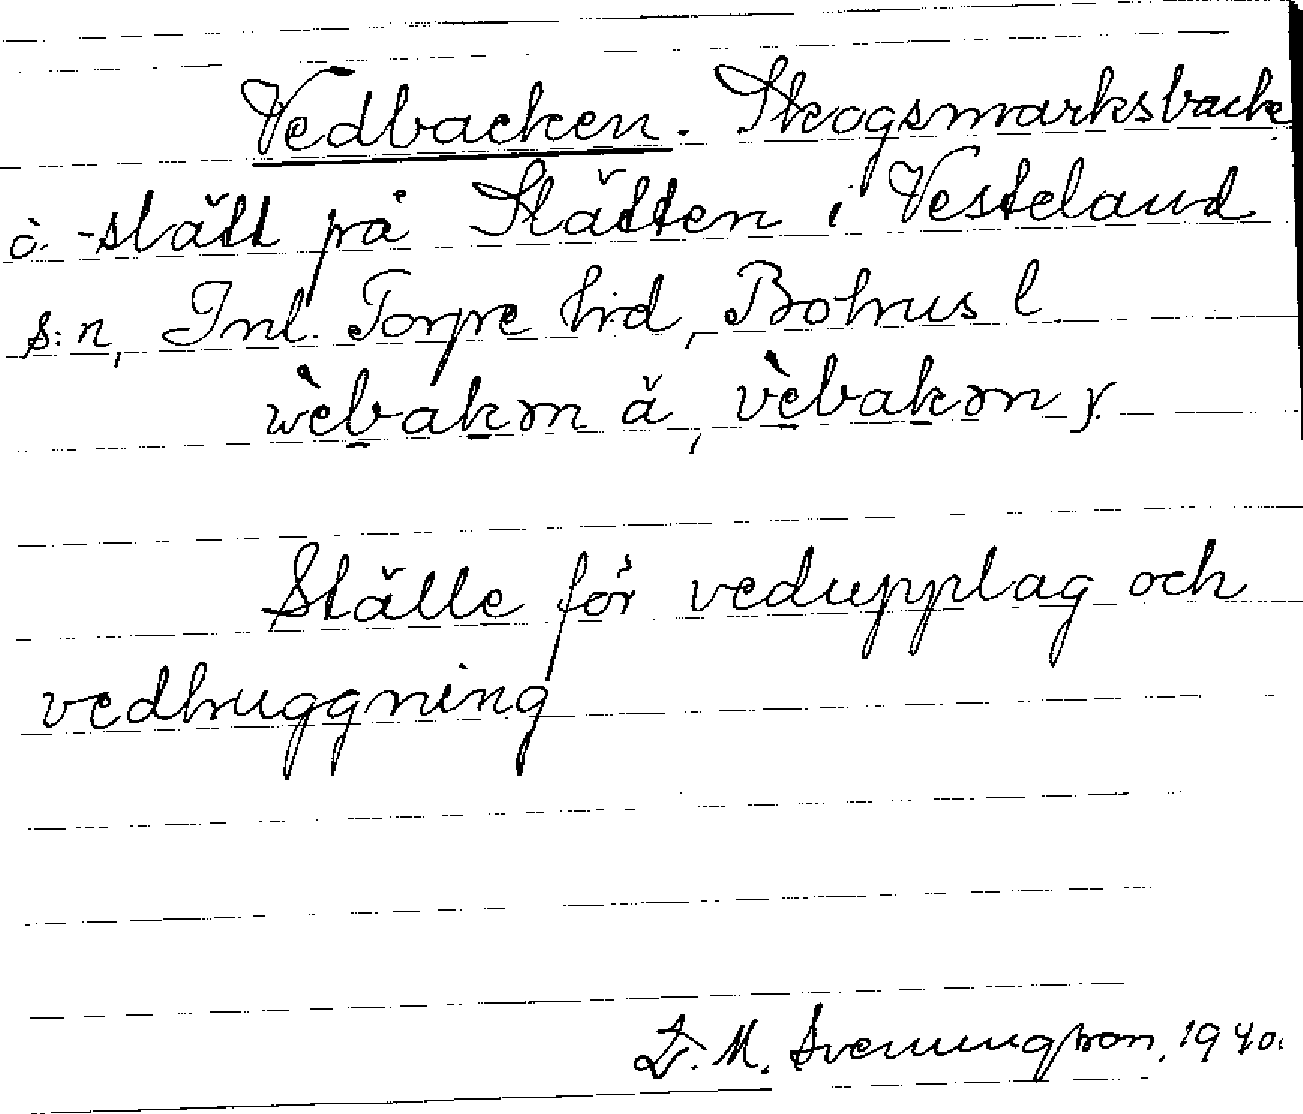 Vedbacken. Skogsmarksbacke
o. -slätt på Slätten i Vesteland
s:n, Inl. Torpe hrd, Bohus l
vèbakɘn ä, vèbakɘn y.
Ställe för vedupplag och
vedhuggning
D. M. Svenungsson, 1940.